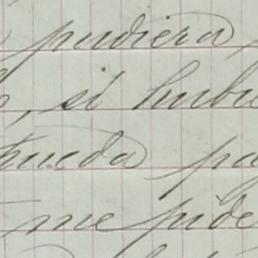 pudiera
si hubi
pueda pa
me pide